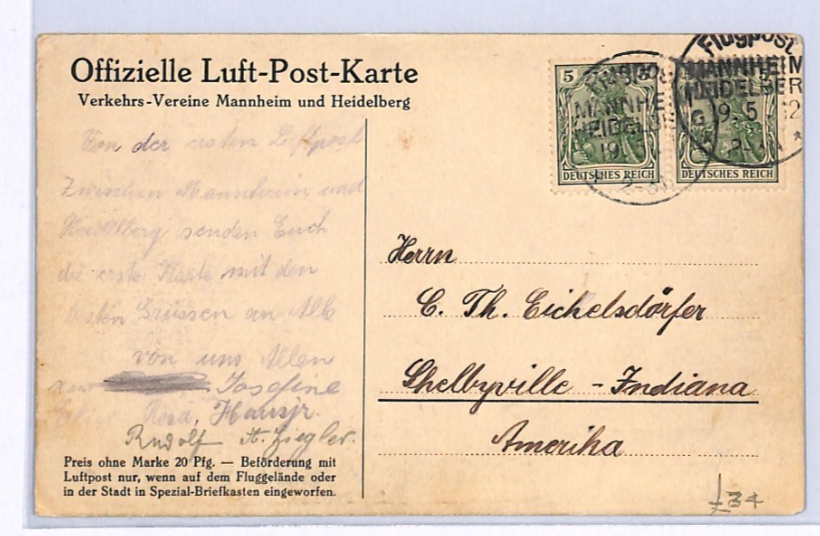 Offizielle Luft-Post-Karte
Verkehrs-Vereine Mannheim und Heidelberg
Flugpost
MANNHEIM
HEIDELBERG
19.5.12
5
DEUTSCHES REICH
Flugpost
MANNHEIM
HEIDELBERG
19.5
DEUTSCHES REICH
Von der ersten Luftpost
Zwischen Mannheim und
Heidelberg senden Euch
die erste Karte mit den
besten Grüssen an Alle
von uns Allen
Josefine
Rosa, Hansjr.
Rudolf A. Ziegler.
Herrn
C. Th. Eichelsdörfer
Shelbyville - Indiana
Amerika
Preis ohne Marke 20 Pfg. — Beförderung mit
Luftpost nur, wenn auf dem Fluggelände oder
in der Stadt in Spezial-Briefkasten eingeworfen.
£34